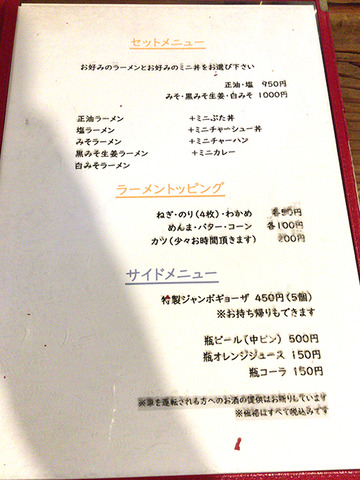 セットメニュー
お好みのラーメンとお好みのミニ丼をお選び下さい
正油・塩 950円
みそ・黒みそ生姜・白みそ 1000円
正油ラーメン +ミニぶた丼
塩ラーメン +ミニチャーシュー丼
みそラーメン +ミニチャーハン
黒みそ生姜ラーメン +ミニカレー
白みそラーメン
ラーメントッピング
ねぎ・のり(4枚)・わかめ 各50円
めんま・バター・コーン 各100円
カツ(少々お時間頂きます) 200円
サイドメニュー
特製ジャンボギョーザ 450円(5個)
※お持ち帰りもできます
瓶ビール(中ビン) 500円
瓶オレンジジュース 150円
瓶コーラ 150円
※車を運転される方へのお酒の提供はお断りしています
※価格はすべて税込みです